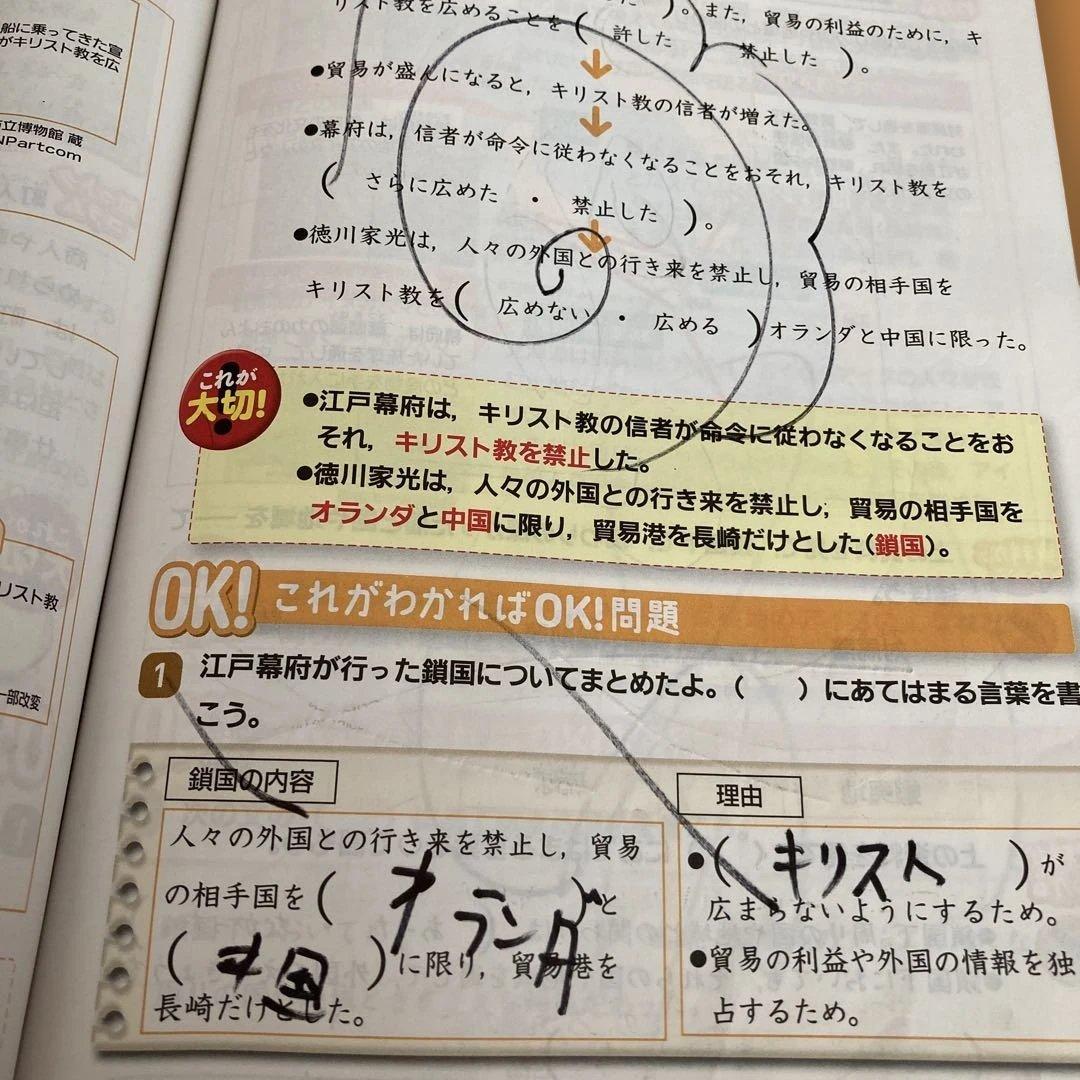 船に乗ってきた宣
がキリスト教を広
立博物館 蔵
NPartcom
リスト教
一部改変
）。また，貿易の利益のために，キ
リスト教を広めることを（ 許した ・ 禁止した ）。
●貿易が盛んになると，キリスト教の信者が増えた。
●幕府は，信者が命令に従わなくなることをおそれ，キリスト教を
（ さらに広めた ・ 禁止した ）。
●徳川家光は，人々の外国との行き来を禁止し，貿易の相手国を
キリスト教を（ 広めない ・ 広める ）オランダと中国に限った。
これが
大切！
●江戸幕府は，キリスト教の信者が命令に従わなくなることをお
それ，キリスト教を禁止した。
●徳川家光は，人々の外国との行き来を禁止し，貿易の相手国を
オランダと中国に限り，貿易港を長崎だけとした（鎖国）。
OK! これがわかればOK!問題
1 江戸幕府が行った鎖国についてまとめたよ。（ ）にあてはまる言葉を書
こう。
鎖国の内容
人々の外国との行き来を禁止し，貿易
の相手国を（ オランダ ）と
（ 中国 ）に限り，貿易港を
長崎だけとした。
理由
●（ キリスト ）が
広まらないようにするため。
●貿易の利益や外国の情報を独
占するため。